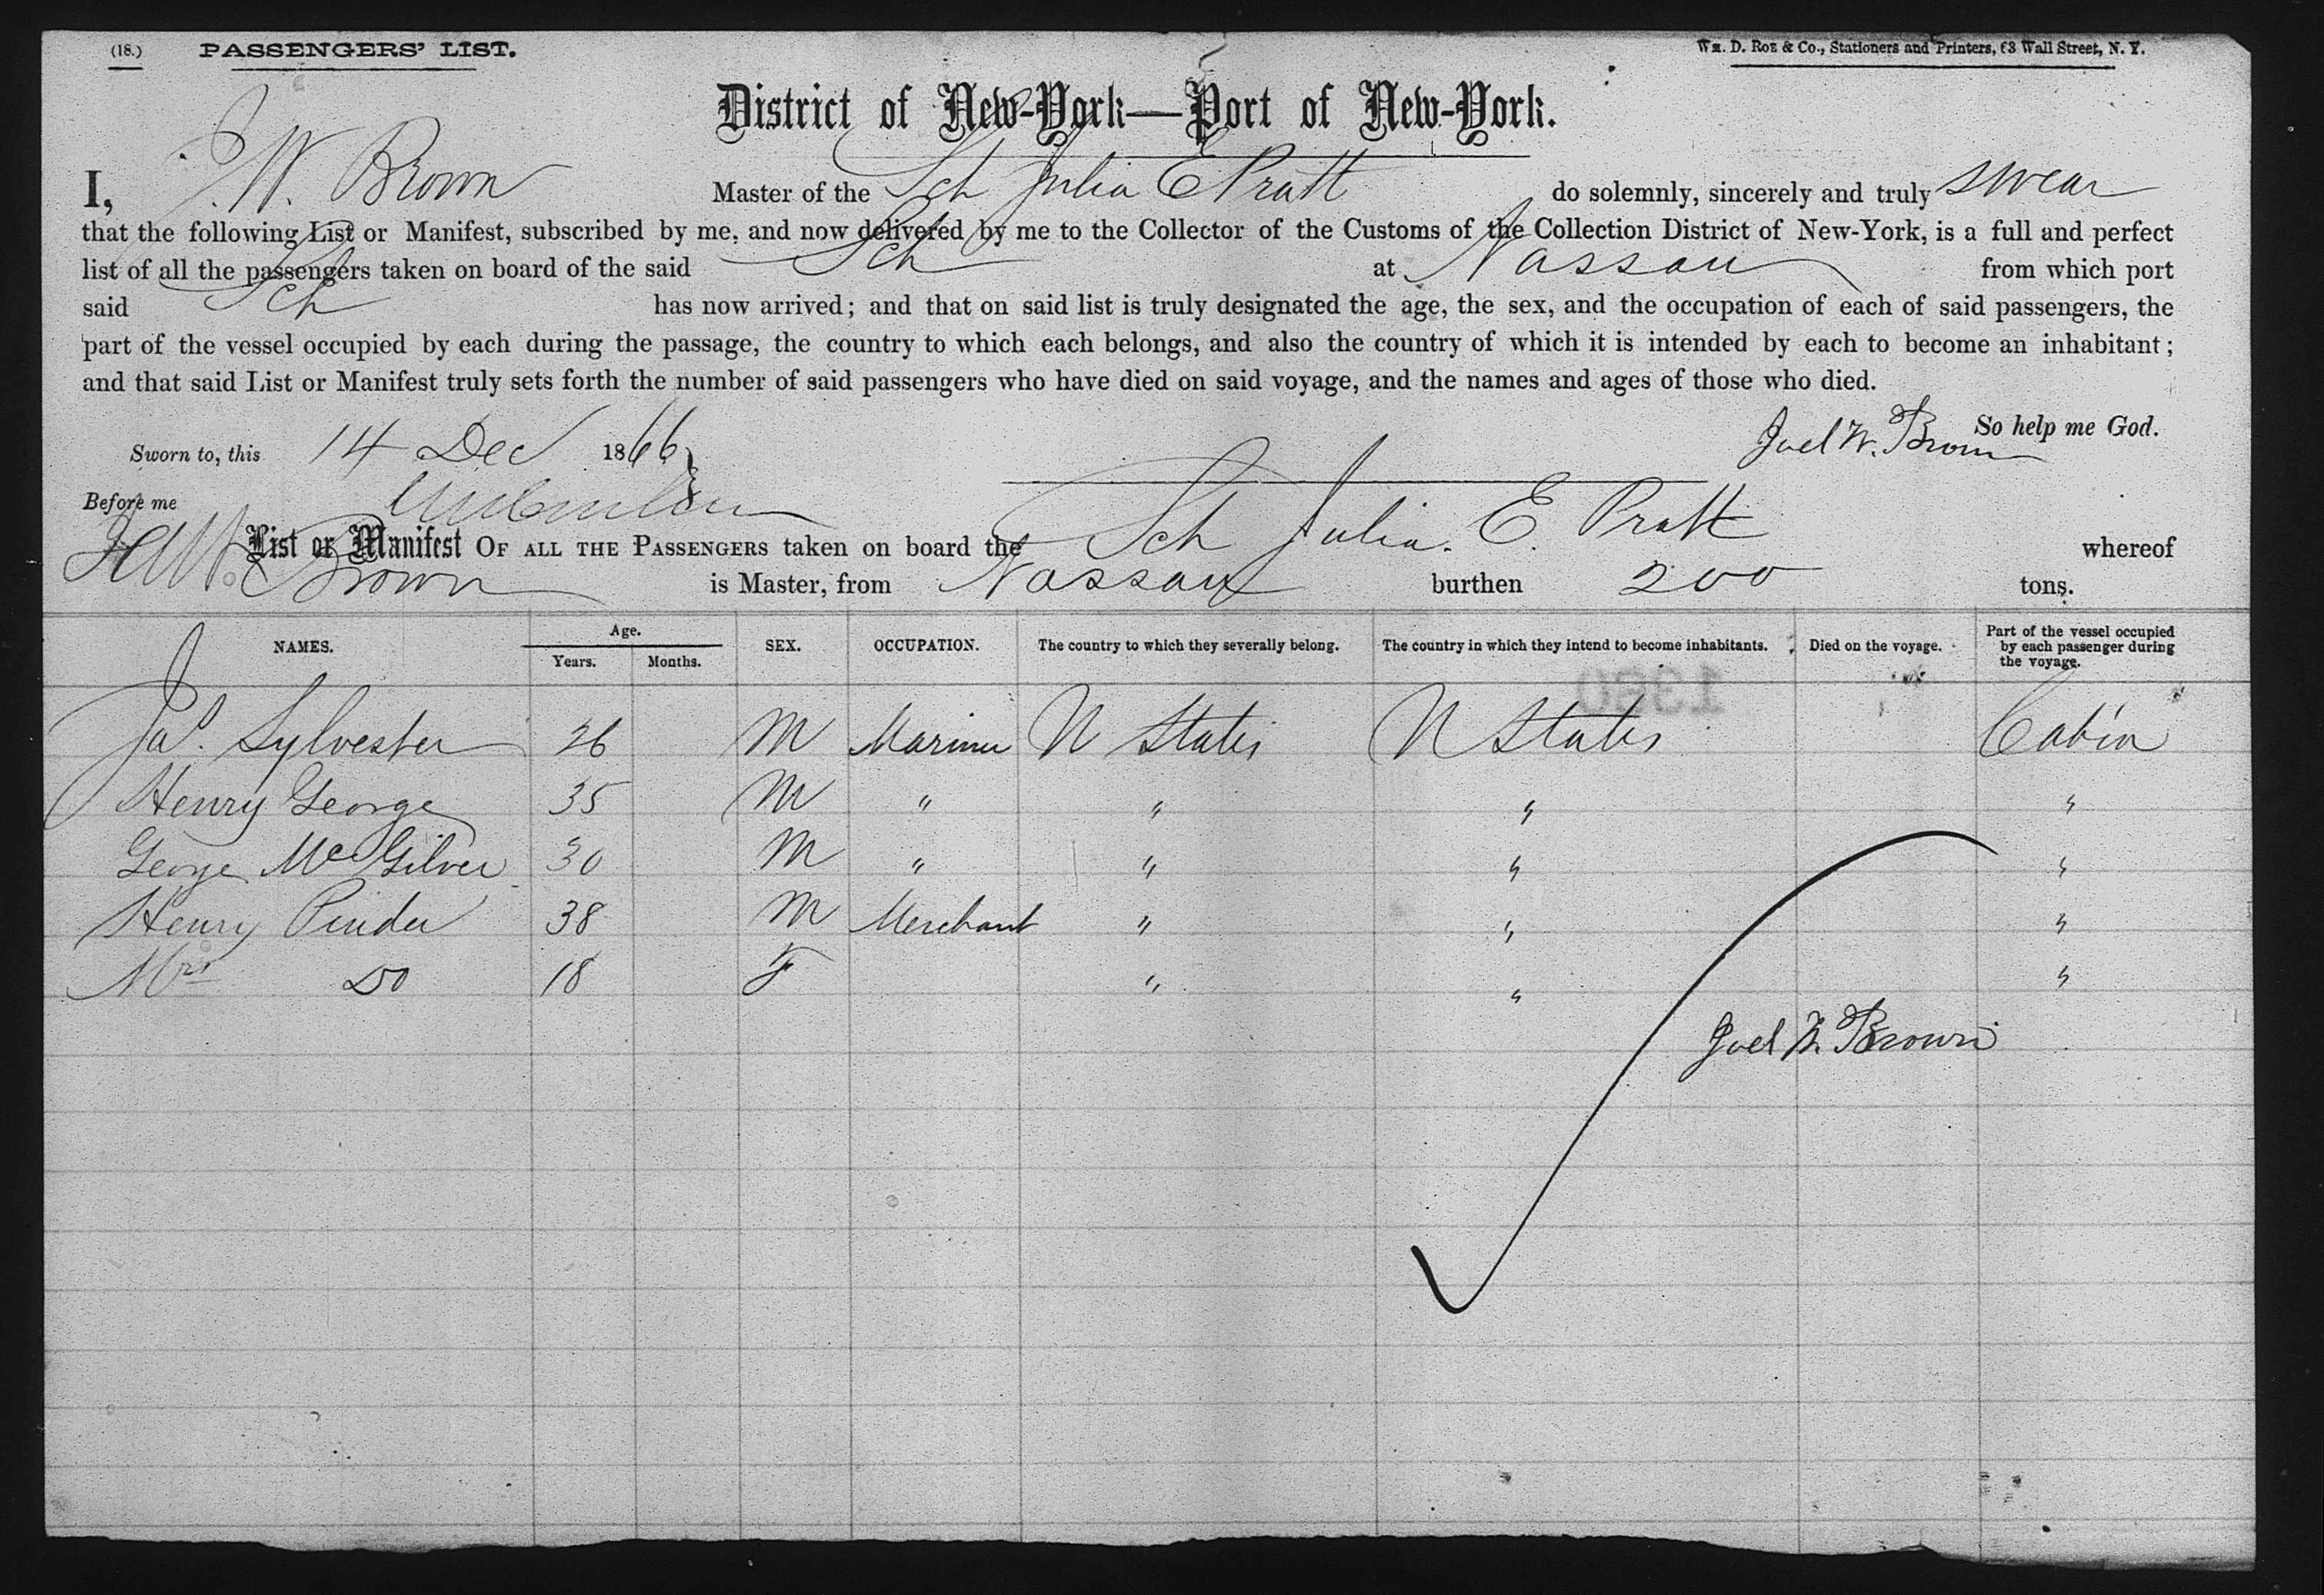 (18.) PASSENGERS' LIST. Wm. D. Roe & Co., Stationers and Printers, 63 Wall Street, N. Y.
District of New-York—Port of New-York.
I, J. W. Brown Master of the Sch Julia E Pratt do solemnly, sincerely and truly swear
that the following List or Manifest, subscribed by me, and now delivered by me to the Collector of the Customs of the Collection District of New-York, is a full and perfect
list of all the passengers taken on board of the said Sch at Nassau from which port
said Sch has now arrived; and that on said list is truly designated the age, the sex, and the occupation of each of said passengers, the
part of the vessel occupied by each during the passage, the country to which each belongs, and also the country of which it is intended by each to become an inhabitant;
and that said List or Manifest truly sets forth the number of said passengers who have died on said voyage, and the names and ages of those who died.
So help me God.
Sworn to, this 14 Dec 1866 Joel W. Brown
Before me
List or Manifest OF ALL THE PASSENGERS taken on board the Sch Julia. E. Pratt whereof
Brown is Master, from Nassau burthen 200 tons.
NAMES. Age. Years. Months. SEX. OCCUPATION. The country to which they severally belong. The country in which they intend to become inhabitants. Died on the voyage. Part of the vessel occupied by each passenger during the voyage.
1360
Jas. Sylvester 26 M Mariner U States U States Cabin
Henry George 35 M " " " "
George McGilver 30 M " " " "
Henry Pinder 38 M Merchant " " "
Mrs Do 18 F " " "
Joel W. Brown